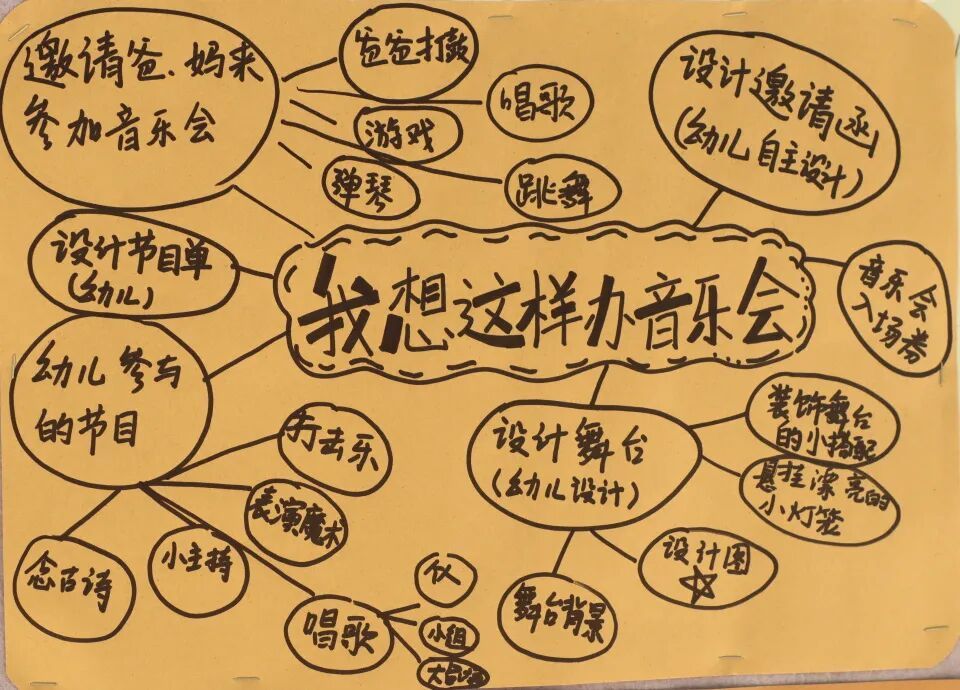 邀请爸、妈来
参加音乐会
爸爸打鼓
唱歌
游戏
弹琴
跳舞
设计邀请函
(幼儿自主设计)
设计节目单
(幼儿)
我想这样办音乐会
音乐会
入场券
幼儿参与
的节目
打击乐
表演魔术
小主持
念古诗
唱歌
小组
设计舞台
(幼儿设计)
装饰舞台
的小搭配
悬挂漂亮的
小灯笼
设计图
舞台背景